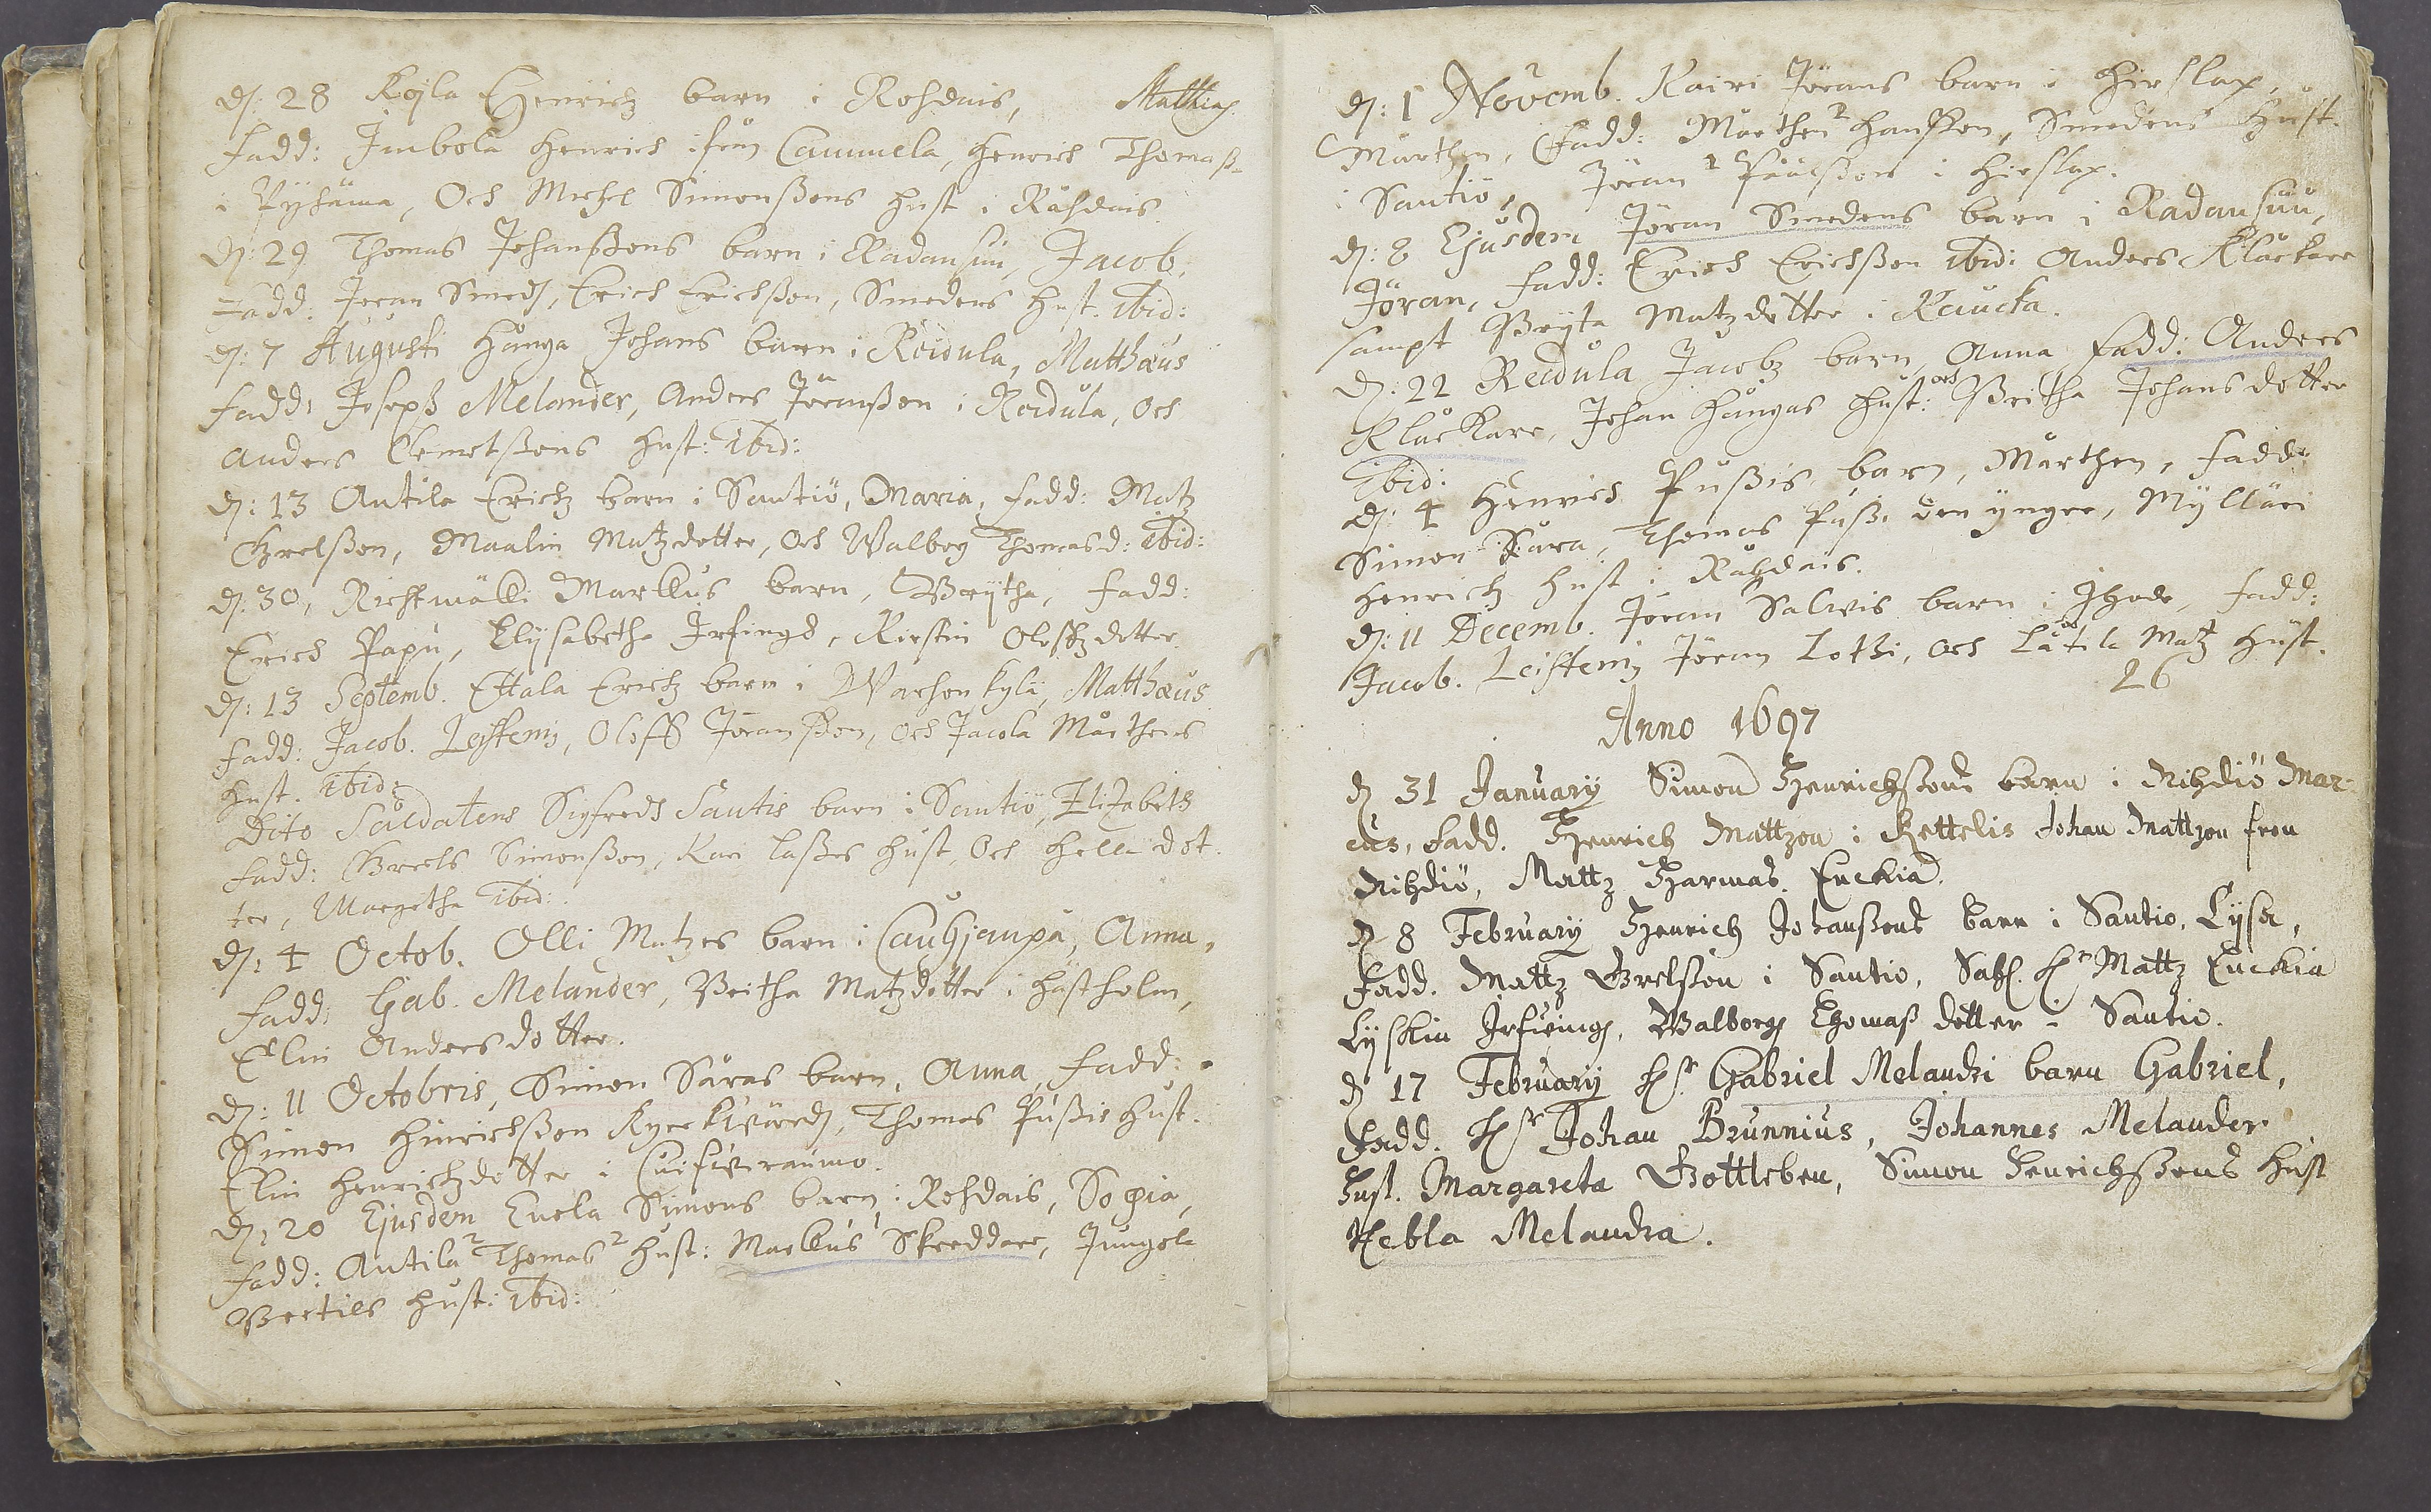 d: 28 Kojla Henrichz barn i Rohdais, Mathias.
fadd: Imbola Henrich ifrån Cammela, Henrich Thomaß-
i Pyhäma, Och Michel Simonßons hust i Råhdais
d: 29 Thomas Johanßons barn i Radansuu, Jacob,
Fadd: Jöran Smeds, Erich Erichßon, Smedens hust. ibid:
d: 7 Augusti Hånga Johans barn i Reidula, Matthæus
fadd: Joseph Melander, Anders Jöranßon i Reidula, och
Anders Clemetßons hust: ibid:
d: 13 Antila Erichz barn i Santiö, Maria, fadd: Matz
Grelßon, Maalin Matzdotter, och Walborg Thomasd: ibid:
d: 30, Markkus barn, Brÿtha, fadd:
Erich Papu, Elÿsabetha Irfingd, Kirstin Olofzdotter
d: 13 Septemb. Ettala Erichz barn i Warhonkylä, Matthæus.
fadd: Jacob. Leistenij, Oloff Jöranßon, och Jacola Mårthens
hust. ibid:
Dito Saldatens Sigfreds Santis barn i Santiö, Elizabeth
fadd: Greels Simonßon, Kari Laßes hust, och Helli dot-
ter, Margetha ibid:
d: 4 Octob. Olli Matzes barn i Cauhjanpä, Anna,
fadd: Gab. Melander, Britha Matzdotter i Hästholm,
Elin Andersdotter.
d: 11 Octobris, Simon Såras barn, Anna, fadd:
Simon Hinrichßon Kyrckwärd, Thomas Pußis hust.
Elin Henrichzdotter i
d: 20 Ejusdem Eucla Simons barn i Rohdais, Sophia,
fadd: Antila 2 Thomas 2 hust: Markkus 1 Skreddare, Jungola
Bertils hust: ibid:
d: 1 Novemb. Kairi Jörans barn i Hirslax,
Mårthen, Fadd: Mårthen 2 Hanßon, Smedens hust.
i Santiö, Jöran 1 Påålßon i Hirslax.
d: 8 Ejusdem Jöran Smedens barn i Radansuu,
Jöran, fadd: Erich Erichßon ibid: Anders Klåckare
sampt Brÿta Matzdotter i Kaucka.
d: 22 Reidula Jacobz barn, Anna fadd: Anders
Klåckare, Johan Hångas hust: och Britha Johansdotter
ibid:
d: 4 Henrich Pußis barn, Mårthen, fadd:
Simon Såra, Thomas Puß. den yngre, Mÿlläri
Henrichz hust i Råhdais.
d: 11 Decemb. Jöran Salwis barn i Ihode, fadd:
Jacob. Leistenij Jöran Lothi, och Låtila Matz hust.
26
Anno 1697
d 31 Januarÿ Simon Henrichßons barn i Nihdiö Mar-
cus, Fadd. Henrich Mattzon i Kettelis Johan Mattzon fron
Nihdiö, Mattz Harmas. Enckia.
d 8 Februarÿ Henrich Johanßons barn i Santio, Lÿsa,
Fadd. Mattz Grelßon i Santio, Sahl. Hr Mattz Enckia
Lÿskin Irfwings, Walborg Thomaß dotter i Santio.
d 17 Februarÿ Hr. Gabriel Melandri barn Gabriel,
Fadd. Hr Johan Brunnius, Johannes Melander
Hust. Margareta Gottleben, Simon Henrichßons Hust
Hebla Melandra.